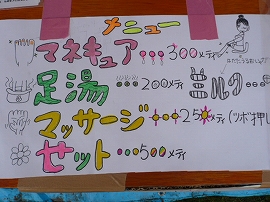 メニュー
マネキュア・・・300メディ
足湯・・・200メディ ミルク・・
マッサージ・・・250メディ(ツボ押し
セット・・・500メディ